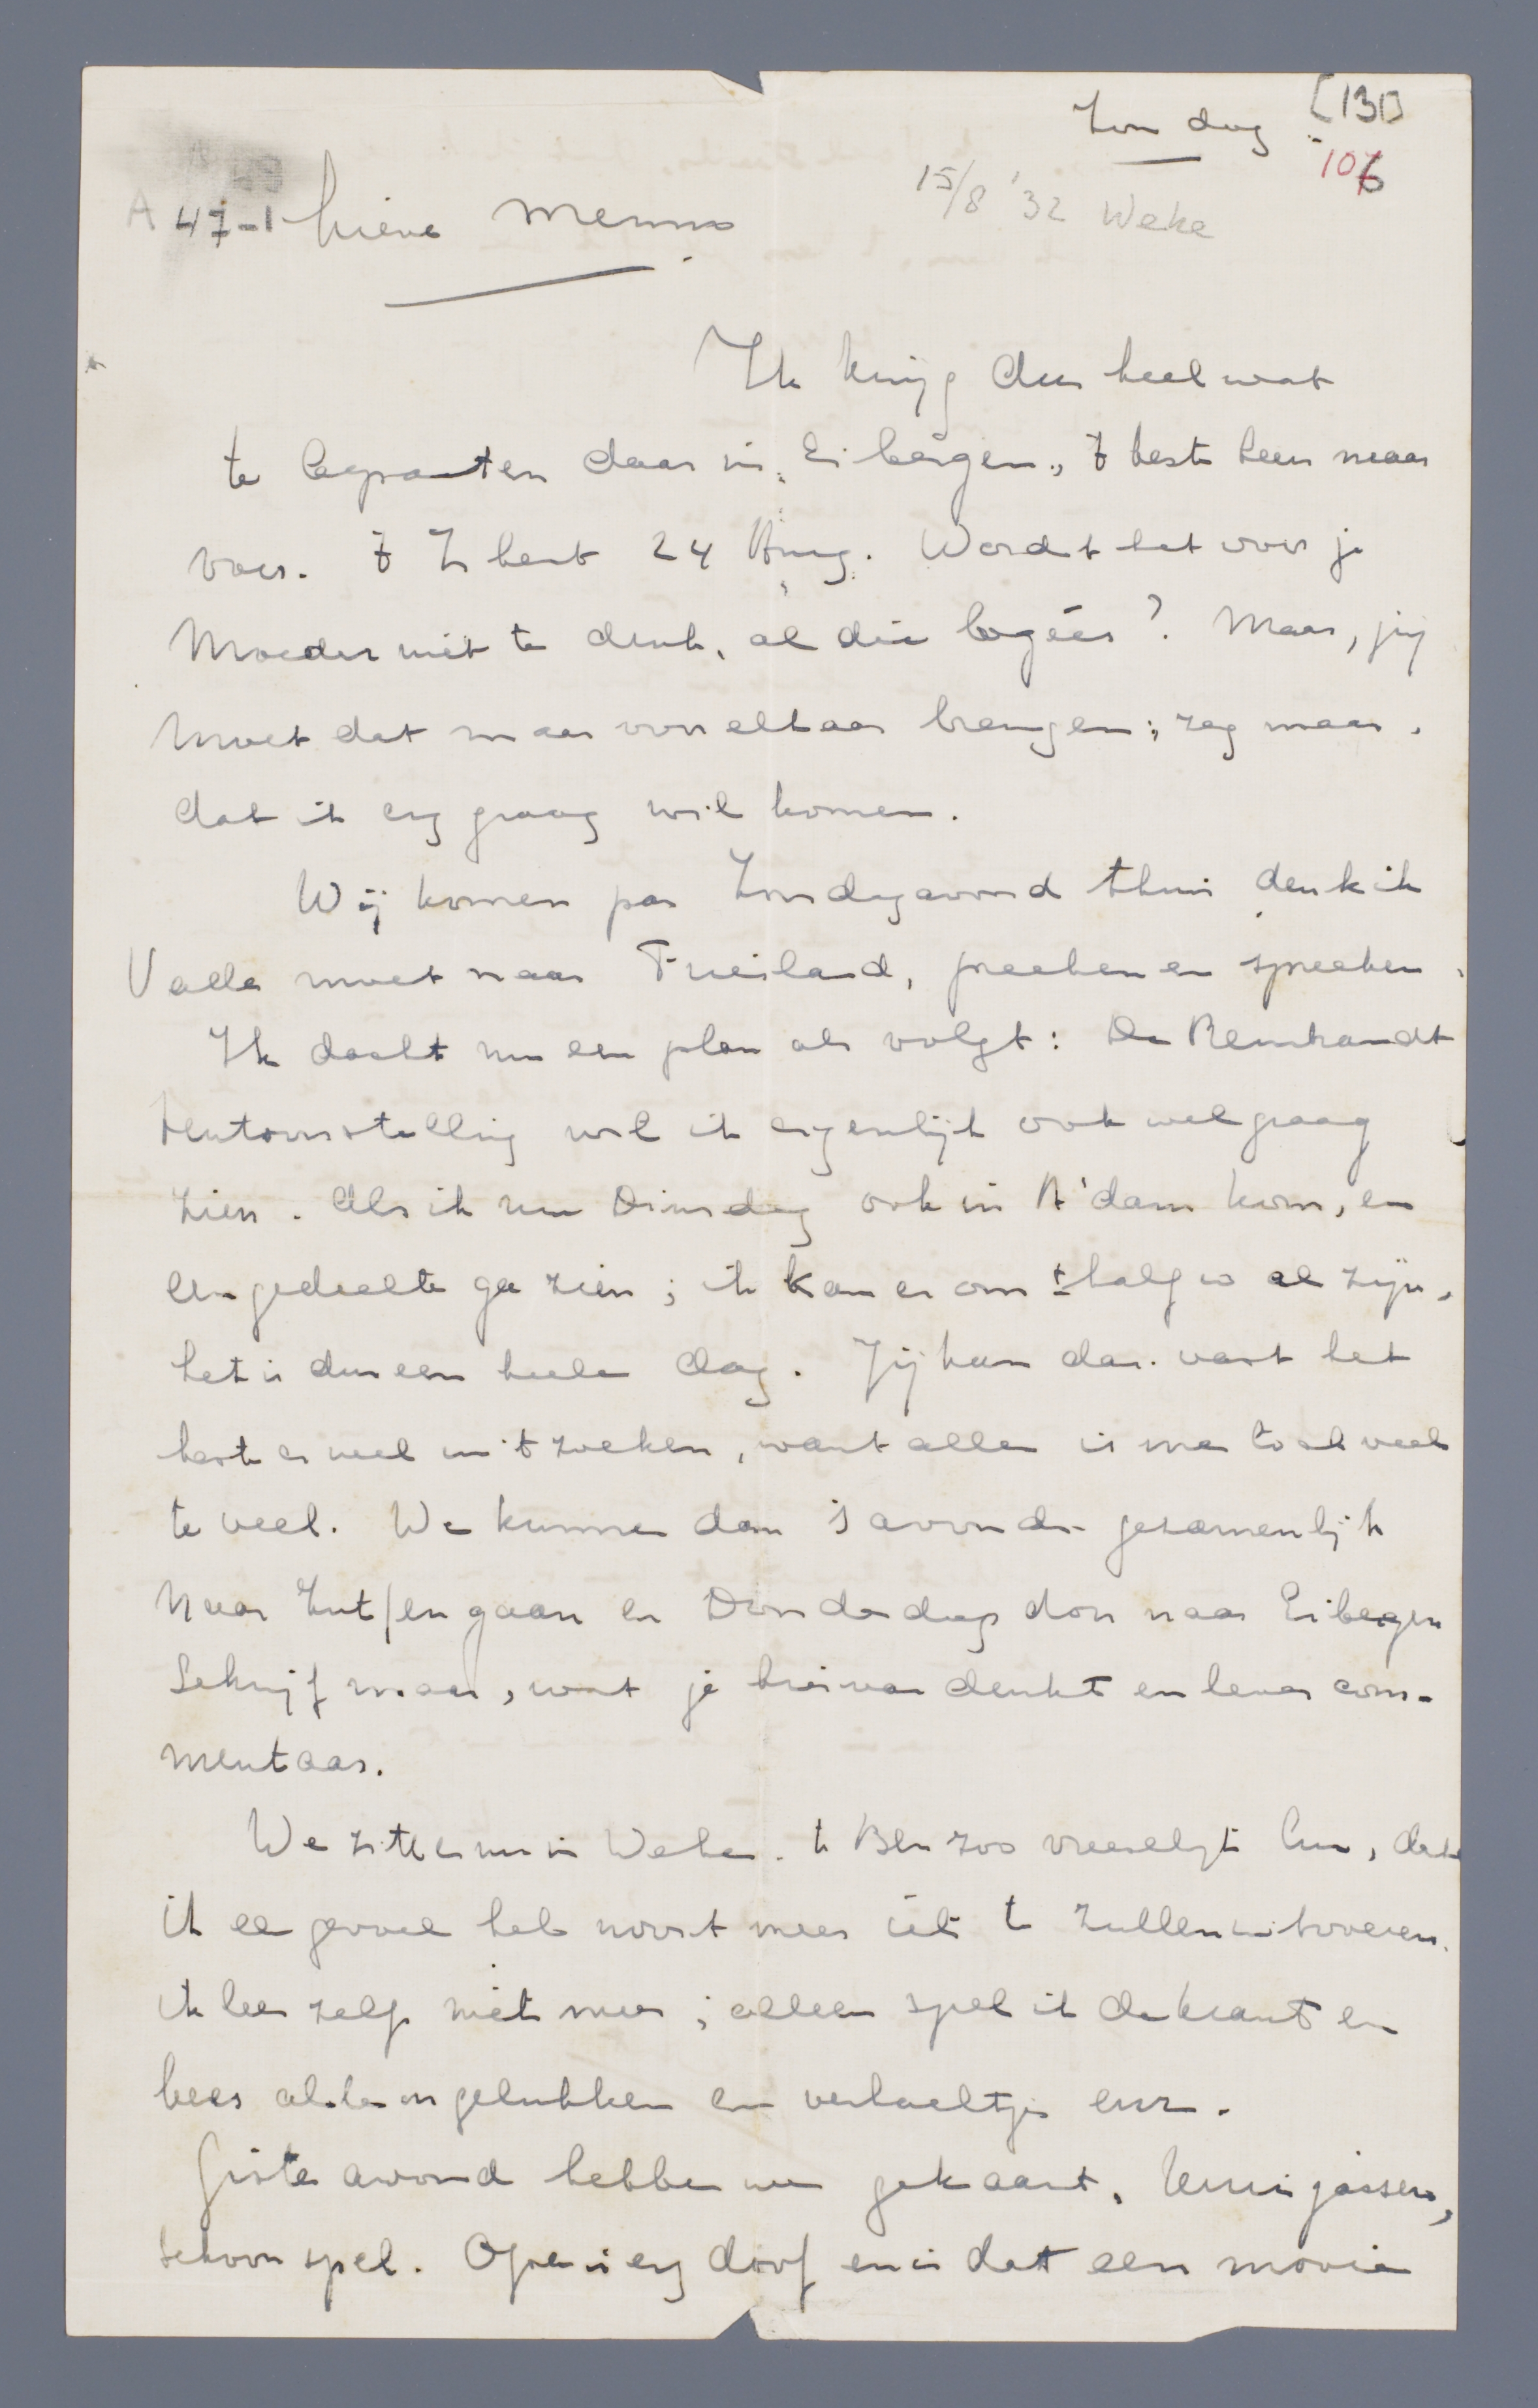 Zondag [131]
106
15/8 '32 Weke
A 47-1 Lieve Menno
Ik krijg dus heel wat
te bepraten daar in Eibergen, 't beste leen maar
voor. 24 Aug. Wordt het voor je
Moeder niet te druk, al die logées? Maar, jij
moet dat maar voor elkaar brengen; zeg maar,
dat ik erg graag wil komen.
Wij komen pas Zondagavond thuis denk ik
Valle moet naar Friesland, preeken en spreeken.
Ik dacht nu een plan als volgt: De Rembrandt
tentoonstelling wil ik eigenlijk ook wel graag
zien. Als ik nu Dinsdag ook in A'dam kom, en
een gedeelte ga zien; ik kan er om ± half 10 al zijn,
het is dus een heele dag. Jij kan dan vast het
beste er veel uit zoeken, want alles is me toch veel
te veel. We kunnen dan 's avonds gezamenlijk
naar Zutfen gaan en Donderdag dan naar Eibergen
Schrijf maar, wat je hiervan denkt en lever com-
mentaar.
We zitten nu in Weke. Ik Ben zoo vreeselijk lui, dat
ik een gevoel heb nooit meer iets te zullen uitvoeren.
ik lees zelfs niet meer; alleen spel ik de krant en
lees alle ongelukken en verhaaltjes enz.
Gisteravond hebben we gekaart, klaverjassen,
schoon spel. Opa is erg doof en is dat een mooie